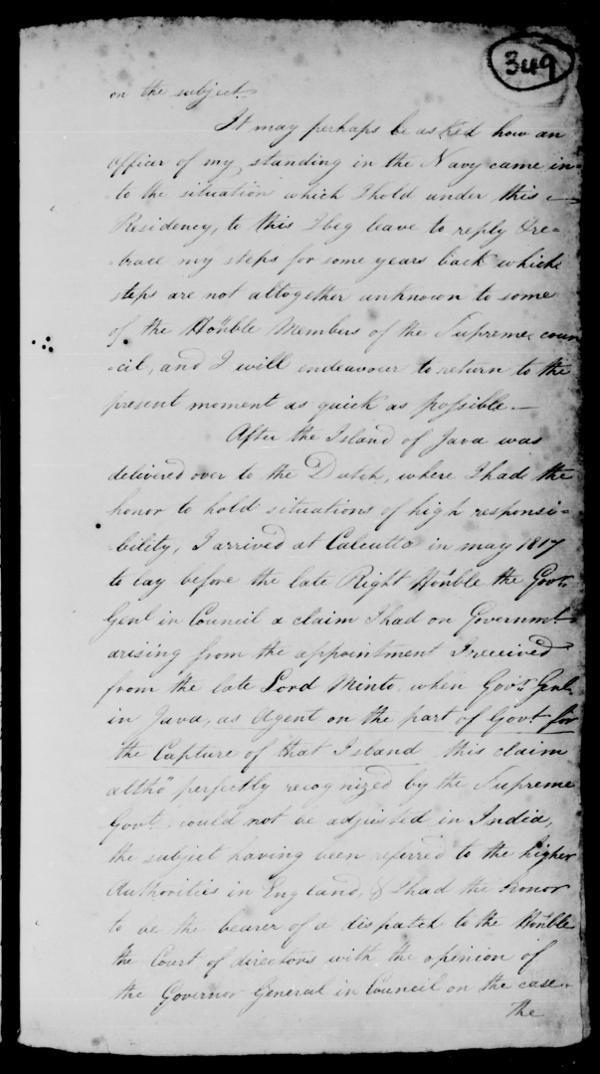 349
on the subject.
It may perhaps be asked how an
officer of my standing in the Navy came in-
-to the situation which I hold under this —
Residency, to this I beg leave to reply & re-
-trace my steps for some years back which
steps are not altogether unknown to some
of the Honble Members of the Supreme coun
-cil, and I will endeavour to return to the
present moment as quick as possible. —
After the Island of Java was
delivered over to the Dutch, where I had the
honor to hold situations of high responsi-
-bility, I arrived at Calcutta in may 1817
to lay before the late Right Honble the Govr
Genl in Council a claim I had on Governmt
arising from the appointment I received
from the late Lord Minto, when Govr Genl
in Java, as Agent on the part of Govt for
the Capture of that Island this claim
altho' perfectly recognized by the Supreme
Govt could not be adjusted in India,
the subject having been referred to the higher
Authorities in England, & I had the honor
to be the bearer of a dispatch to the Honble
the Court of directors with the opinion of
the Governor General in Council on the case.
The